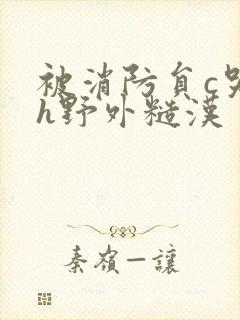 被消防負c哭
h野外糙漢
秦嶺一讓